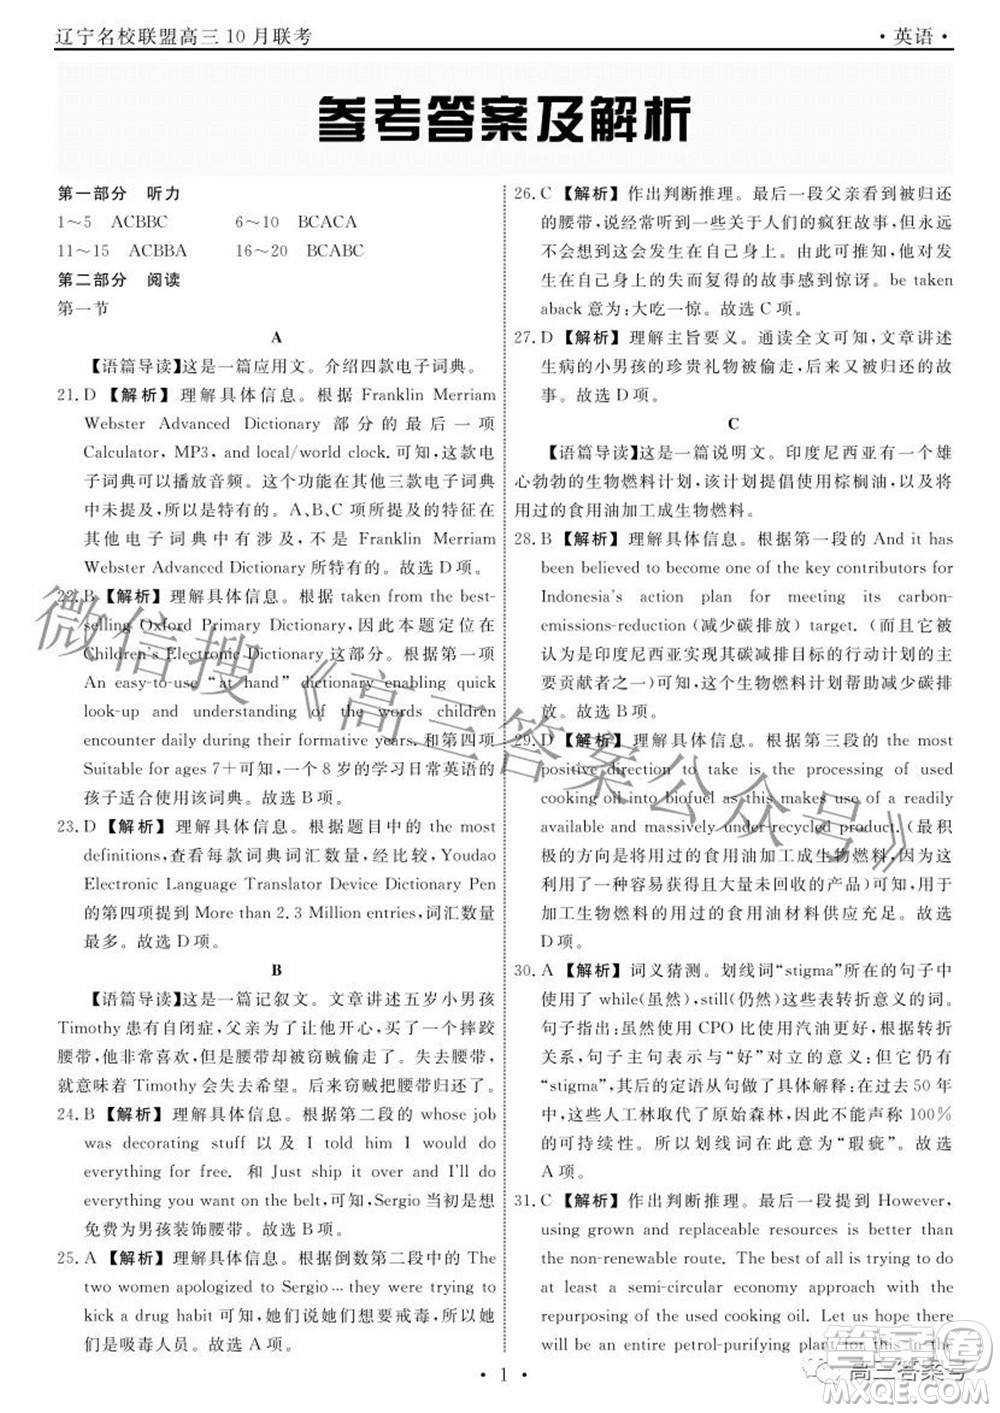 辽宁名校联盟高三10月联考
·英语·
参考答案及解析
第一部分 听力
1～5 ACBBC 6～10 BCACA
11～15 ACBBA 16～20 BCABC
第二部分 阅读
第一节
A
【语篇导读】这是一篇应用文。介绍四款电子词典。
21. D 【解析】理解具体信息。根据 Franklin Merriam
Webster Advanced Dictionary 部分的最后一项
Calculator, MP3, and local/world clock.可知，这款电
子词典可以播放音频。这个功能在其他三款电子词典
中未提及，所以是特有的。A、B、C 项提及的特征在
其他电子词典中有涉及，不是 Franklin Merriam
Webster Advanced Dictionary 所特有的。故选 D 项。
22. B 【解析】理解具体信息。根据 taken from the best-
selling Oxford Primary Dictionary，因此本题定位在
Children's Electronic Dictionary 这部分。根据第一项
An easy-to-use "at hand" dictionary enabling quick
look-up and understanding of the words children
encounter daily during their formative years. 和第四项
Suitable for ages 7＋可知，一个 8 岁的学习日常英语的
孩子适合使用该词典。故选 B 项。
23. D 【解析】理解具体信息。根据题目中的 the most
definitions，查看每款词典词汇数量，经比较，Youdao
Electronic Language Translator Device Dictionary Pen
的第四项提到 More than 2.3 Million entries，词汇数量
最多。故选 D 项。
B
【语篇导读】这是一篇记叙文。文章讲述五岁小男孩
Timothy 患有自闭症，父亲为了让他开心，买了一个摔跤
腰带，他非常喜欢，但是腰带被窃贼偷走了。失去腰带，
就意味着 Timothy 会失去希望。所幸窃贼把腰带归还了。
24. B 【解析】理解具体信息。根据第二段的 whose job
was decorating stuff 以及 I told him I would do
everything for free. 和 Just ship it over, and I'll do
everything you want on the belt，可知，Sergio 是想
免费为男孩装饰腰带。故选 B 项。
25. A 【解析】理解具体信息。根据倒数第二段中的 The
two women apologized to Sergio … they were trying to
kick a drug habit 可知，她们说她们想要戒毒，所以她
们是吸毒人员。故选 A 项。
26. C 【解析】作出判断推理。最后一段父亲看到被归还
的腰带，说经常听到一些关于人们的疯狂故事，但永远
不会想到这会发生在自己身上。由此可推知，他对于发
生在自己身上的失而复得的故事感到惊讶。be taken
aback 意为：大吃一惊。故选 C 项。
27. D 【解析】理解主旨要义。通读全文可知，文章讲述
生病的小男孩的珍贵礼物被偷走，后又被归还的故
事。故选 D 项。
C
【语篇导读】这是一篇说明文。印度尼西亚有一个雄
心勃勃的生物燃料计划，该计划提倡使用棕榈油，以及
将用过的食用油加工成生物燃料。
28. B 【解析】理解具体信息。根据第一段的 And it has
been believed to become one of the key contributors for
Indonesia's action plan for meeting its carbon-
emissions-reduction (减少碳排放) target. （而且它被
认为是印度尼西亚实现其碳减排目标的行动计划的主
要贡献者之一）可知，这个生物燃料计划帮助减少碳排
放。故选 B 项。
29. D 【解析】理解具体信息。根据第三段的 the most
positive direction to take is the processing of used
cooking oil into biofuel as this makes use of a readily
available and massively under-recycled product.（最积
极的方向是将用过的食用油加工成生物燃料，因为这
利用了一种容易获得且大量未回收的产品）可知，用于
加工生物燃料的用过的食用油材料供应充足。故选
D 项。
30. A 【解析】词义猜测。划线词"stigma"所在的句子中
使用了 while(虽然)，still(仍然)这种表达转折意义的词。
句子指出：虽然使用 CPO 比使用汽油更好，根据转折
关系，句子主句表示与"好"对立的意义；但是仍然有
"stigma"，其后的定语从句做了具体解释：在过去 50 年
中，这些人工林取代了原始森林，因此不能声称 100%
的可持续性。所以划线词在此处意为"瑕疵"。故选
A 项。
31. C 【解析】作出判断推理。最后一段提到 However,
using grown and replaceable resources is better than
the non-renewable route. The best of all is trying to do
at least a semi-circular economy approach with the
repurposing of the used cooking oil. Let us hope
Indonesia will be able to follow through on this by
building an entire petrol-purifying plant for this in the
· 1 ·
微信搜《高三答案公众号》
高三答案号
答案圈
MXQE.COM